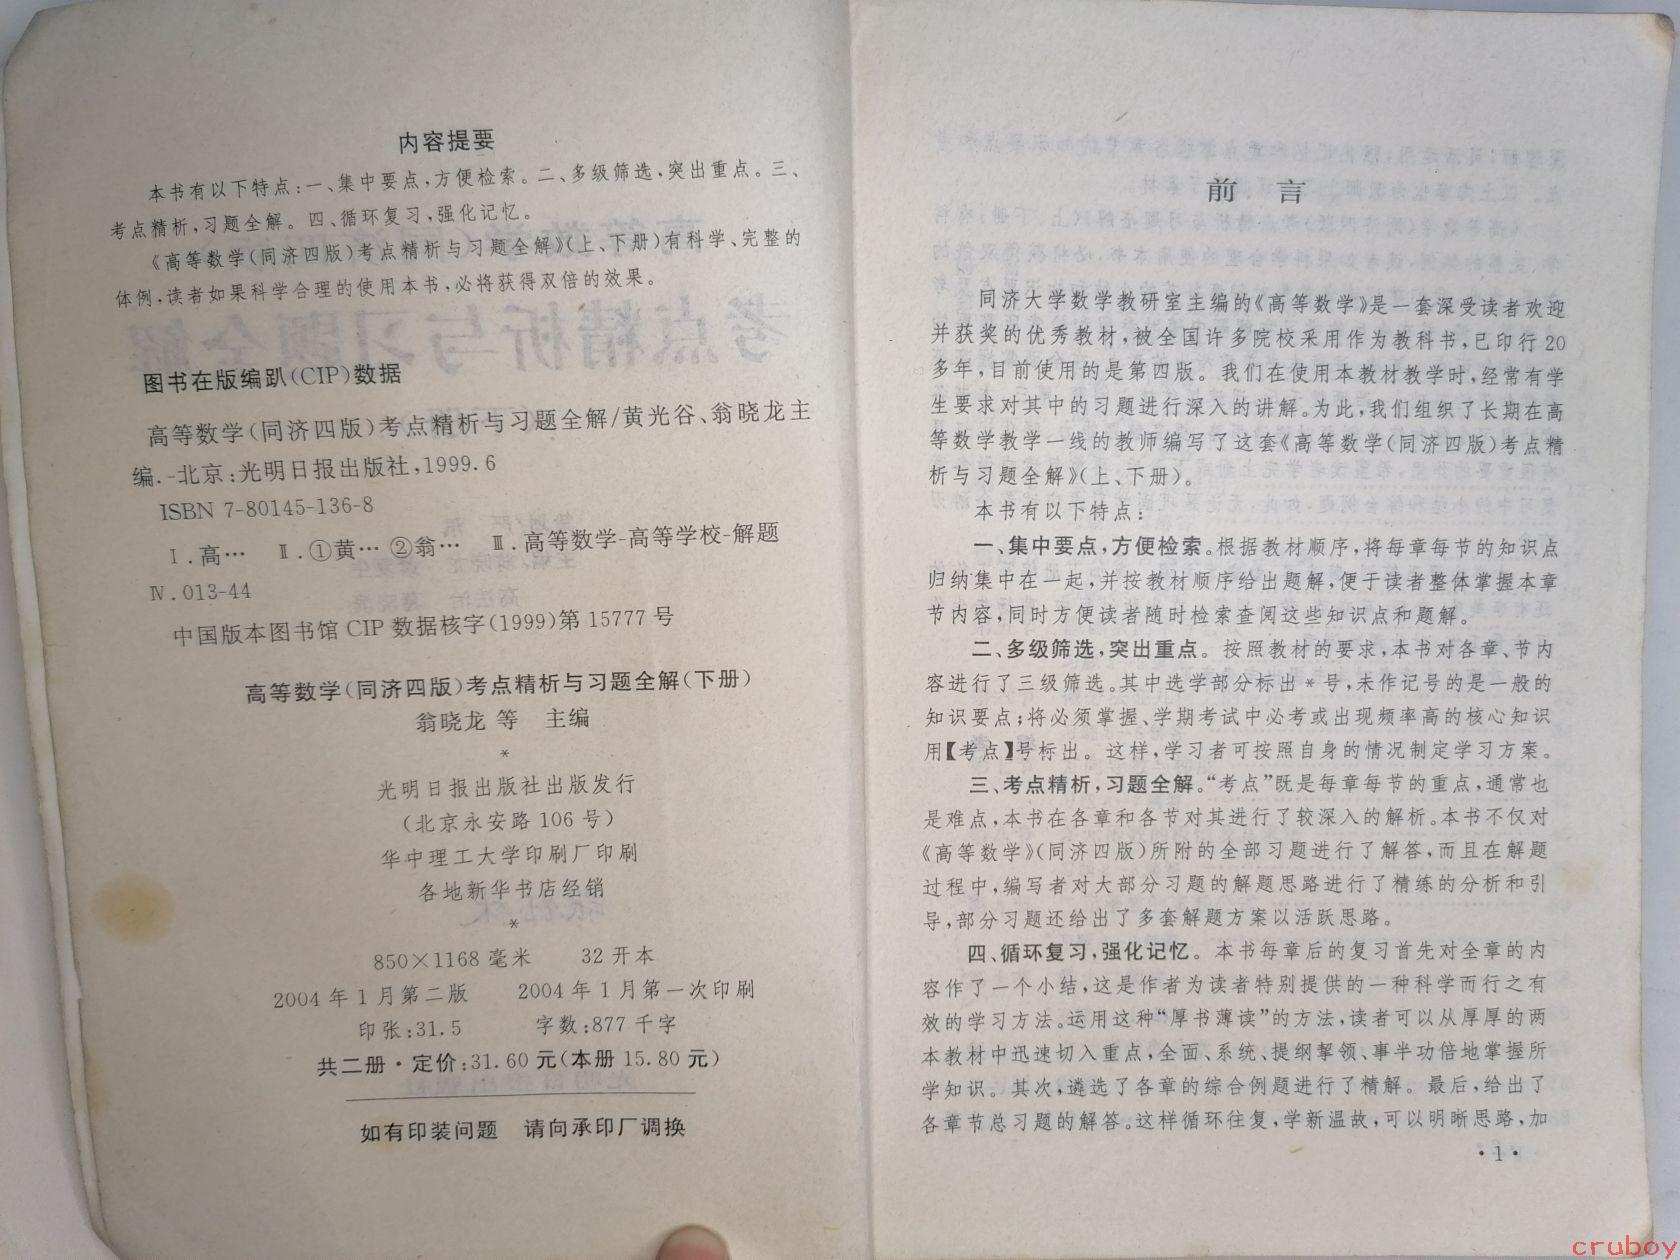 内容提要
本书有以下特点:一、集中要点,方便检索。二、多级筛选,突出重点。三、
考点精析,习题全解。四、循环复习,强化记忆。
《高等数学(同济四版)考点精析与习题全解》(上、下册)有科学、完整的
体例,读者如果科学合理的使用本书,必将获得双倍的效果。
图书在版编趴(CIP)数据
高等数学(同济四版)考点精析与习题全解/黄光谷、翁晓龙主
编.-北京:光明日报出版社,1999.6
ISBN 7-80145-136-8
Ⅰ.高… Ⅱ.①黄… ②翁… Ⅲ.高等数学-高等学校-解题
Ⅳ.013-44
中国版本图书馆 CIP 数据核字(1999)第 15777 号
高等数学(同济四版)考点精析与习题全解(下册)
翁晓龙 等 主编
*
光明日报出版社出版发行
(北京永安路 106 号)
华中理工大学印刷厂印刷
各地新华书店经销
*
850×1168 毫米 32 开本
2004 年 1 月第二版 2004 年 1 月第一次印刷
印张:31.5 字数:877 千字
共二册·定价:31.60 元(本册 15.80 元)
如有印装问题 请向承印厂调换
前 言
同济大学数学教研室主编的《高等数学》是一套深受读者欢迎
并获奖的优秀教材,被全国许多院校采用作为教科书,已印行 20
多年,目前使用的是第四版。我们在使用本教材教学时,经常有学
生要求对其中的习题进行深入的讲解。为此,我们组织了长期在高
等数学教学一线的教师编写了这套《高等数学(同济四版)考点精
析与习题全解》(上、下册)。
本书有以下特点:
一、集中要点,方便检索。根据教材顺序,将每章每节的知识点
归纳集中在一起,并按教材顺序给出题解,便于读者整体掌握本章
节内容,同时方便读者随时检索查阅这些知识点和题解。
二、多级筛选,突出重点。按照教材的要求,本书对各章、节内
容进行了三级筛选。其中选学部分标出 * 号,未作记号的是一般的
知识要点;将必须掌握、学期考试中必考或出现频率高的核心知识
用【考点】号标出。这样,学习者可按照自身的情况制定学习方案。
三、考点精析,习题全解。“考点”既是每章每节的重点,通常也
是难点,本书在各章和各节对其进行了较深入的解析。本书不仅对
《高等数学》(同济四版)所附的全部习题进行了解答,而且在解题
过程中,编写者对大部分习题的解题思路进行了精练的分析和引
导,部分习题还给出了多套解题方案以活跃思路。
四、循环复习,强化记忆。本书每章后的复习首先对全章的内
容作了一个小结,这是作者为读者特别提供的一种科学而行之有
效的学习方法。运用这种“厚书薄读”的方法,读者可以从厚厚的两
本教材中迅速切入重点,全面、系统、提纲挈领、事半功倍地掌握所
学知识。其次,遴选了各章的综合例题进行了精解。最后,给出了
各章节总习题的解答。这样循环往复,学新温故,可以明晰思路,加
·1·
cruboy